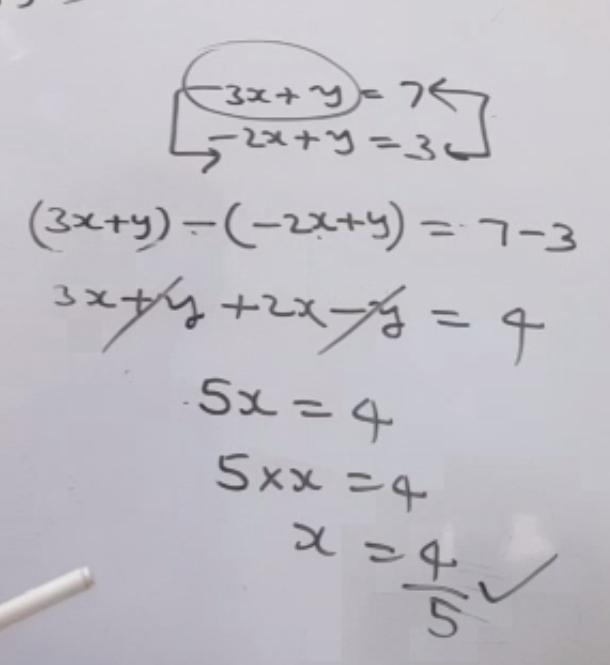 3x+y = 7
-2x+y = 3
(3x+y)-(-2x+y) = 7-3
3x+y +2x-y = 4
5x = 4
5×x = 4
x = 4/5 ✓